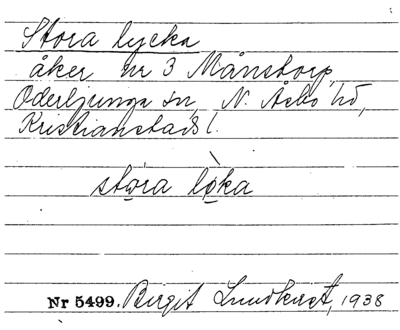 Stora lycka
åker nr 3 Månstorp,
Oderljunga sn, N. Åsbo hd,
Kristianstads l.
stọ́ra lọ̀ka
Nr 5499. Birgit Lundkvist, 1938